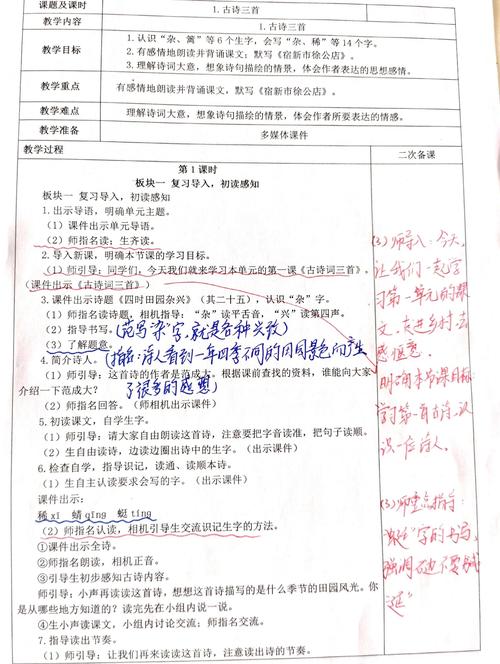 课题及课时
1.古诗三首
教学内容
1.古诗三首
教学目标
1.认识“杂、篱”等6个生字,会写“杂、稀”等14个字。
2.有感情地朗读并背诵课文;默写《宿新市徐公店》。
3.理解诗词大意,想象诗句描绘的情景,体会作者表达的思想感情。
教学重点
有感情地朗读并背诵课文,默写《宿新市徐公店》。
教学难点
理解诗词大意,想象诗句描绘的情景,体会作者所要表达的情感。
教学准备
多媒体课件
教学过程
二次备课
第1课时
板块一 复习导入,初读感知
板块一 复习导入,初读感知
1.出示导语,明确单元主题。
(1)课件出示单元导语。
(2)师指名读;生齐读。
2.导入新课,明确本节课的学习目标。
(1)师引导:同学们,今天我们就来学习本单元的第一课《古诗词三首》。
(课件出示《古诗词三首》)
3.课件出示诗题《四时田园杂兴》(其二十五),认识“杂”字。
(1)师指名读诗题,相机指导:“杂”读平舌音,“兴”读第四声。
(2)指导书写。(范写“杂”字,就是各种兴致)
(3)了解题意。
(指名:诗人看到一年四季不同的田园景色而产生
了很多的感想)
4.简介诗人。
(1)师引导:这首诗的作者是范成大。根据课前查找的资料,谁能向大家
介绍一下范成大?
(2)师指名回答。(师相机出示课件)
5.初读课文,自学生字。
(1)师引导:请大家自由朗读这首诗,注意要把字音读准,把句子读顺。
(2)生自由读诗,边读边圈出诗中的生字。(出示课件)
6.检查自学,指导识记,读通、读顺本诗。
(1)生自主认读要求会写的字。(出示课件)
课件出示:
稀xī 蜻qīng 蜓tíng
(2)师指名认读,相机引导生交流识记生字的方法。
①课件出示全诗。
②师指名朗读,相机正音。
③引导生初步感知古诗内容。
师引导:小声再读读这首诗,想想这首诗描写的是什么季节的田园风光。你
是从哪些地方知道的?读完先在小组内说一说。
④生小声读课文,小组内讨论交流;师指名交流。
7.指导读出节奏。
(1)师引导:让我们再来读读这首诗,注意读出诗的节奏。
(3)师导入:今天,
让我们一起学
习第一单元的课
文,走进乡村去
感悟
明确本节课目标
学习第一首古诗,认
识一位诗人。
(3)师重点指导:
”字的书写,
强调